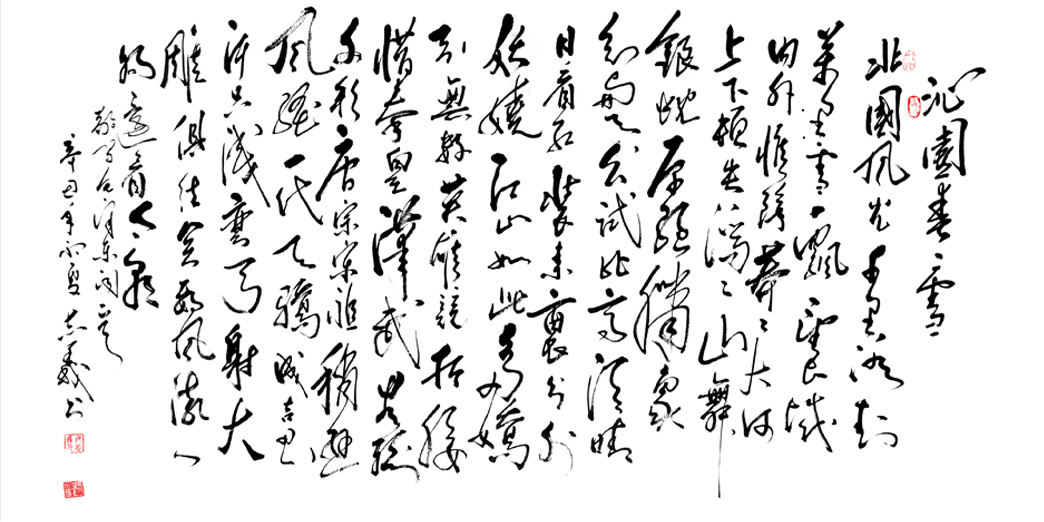 沁園春·雪
北國風光千里冰封
萬里雪飄望長城
內外惟餘莽莽大河
上下頓失滔滔山舞
銀蛇原馳蠟象
欲與天公試比高須晴
日看紅裝素裹分外
妖嬈江山如此多嬌
引無數英雄競折腰
惜秦皇漢武略輸
文彩唐宗宋祖稍遜
風騷一代天驕成吉思
汗只識彎弓射大
雕俱往矣數風流人
物還看今朝
澤東詞
辛巳年夏志義書